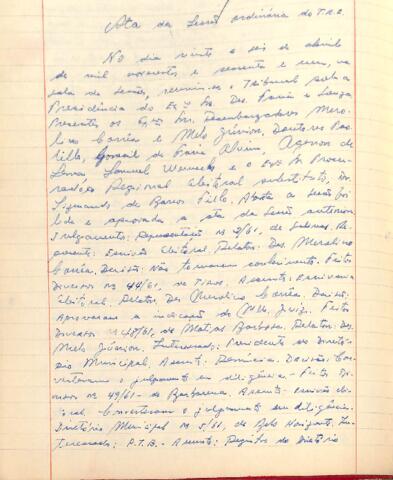 Ata da Sessão ordinária do T.R.E.
No dia vinte e seis de abril
de mil novecentos e sessenta e um, na
sala de sessões, reuniu-se o Tribunal sob a
Presidência do Exmo Sr. Des. Faria e Souza
Presentes os Exmos Srs. Desembargadores Merolino
Corrêa e Melo Júnior, Doutores
de Faria Alvim, Agenor de
Sena, Samuel Werneck e o Exmo Sr. Procurador
Regional Eleitoral substituto, Dr.
de Barros Filho. Aberta a sessão foi
lida e aprovada a ata da sessão anterior.
Julgamento: Representação nº 2/61, de
Assunto: Escrivão Eleitoral. Relator: Des. Merolino
Corrêa. Decisão: Não tomaram conhecimento. Feitos
Diversos nº 44/61, de Tiros. Assunto: Escrivania
Eleitoral. Relator: Des. Merolino Corrêa. Decisão:
Aprovaram a indicação do MM. Juiz. Feitos
Diversos nº 48/61, de Matias Barbosa. Relator: Des.
Melo Júnior. Interessado: Presidente do Diretório
Municipal. Assunto: Denúncia. Decisão: Converteram
o julgamento em diligência. - Feitos Diversos
nº 49/61 - de Barbacena. Assunto - Escrivão eleitoral.
Converteram o julgamento em diligência.
Diretório Municipal nº 5/61, de Belo Horizonte. Interessado:
P.T.B. - Assunto: Registro de Diretório